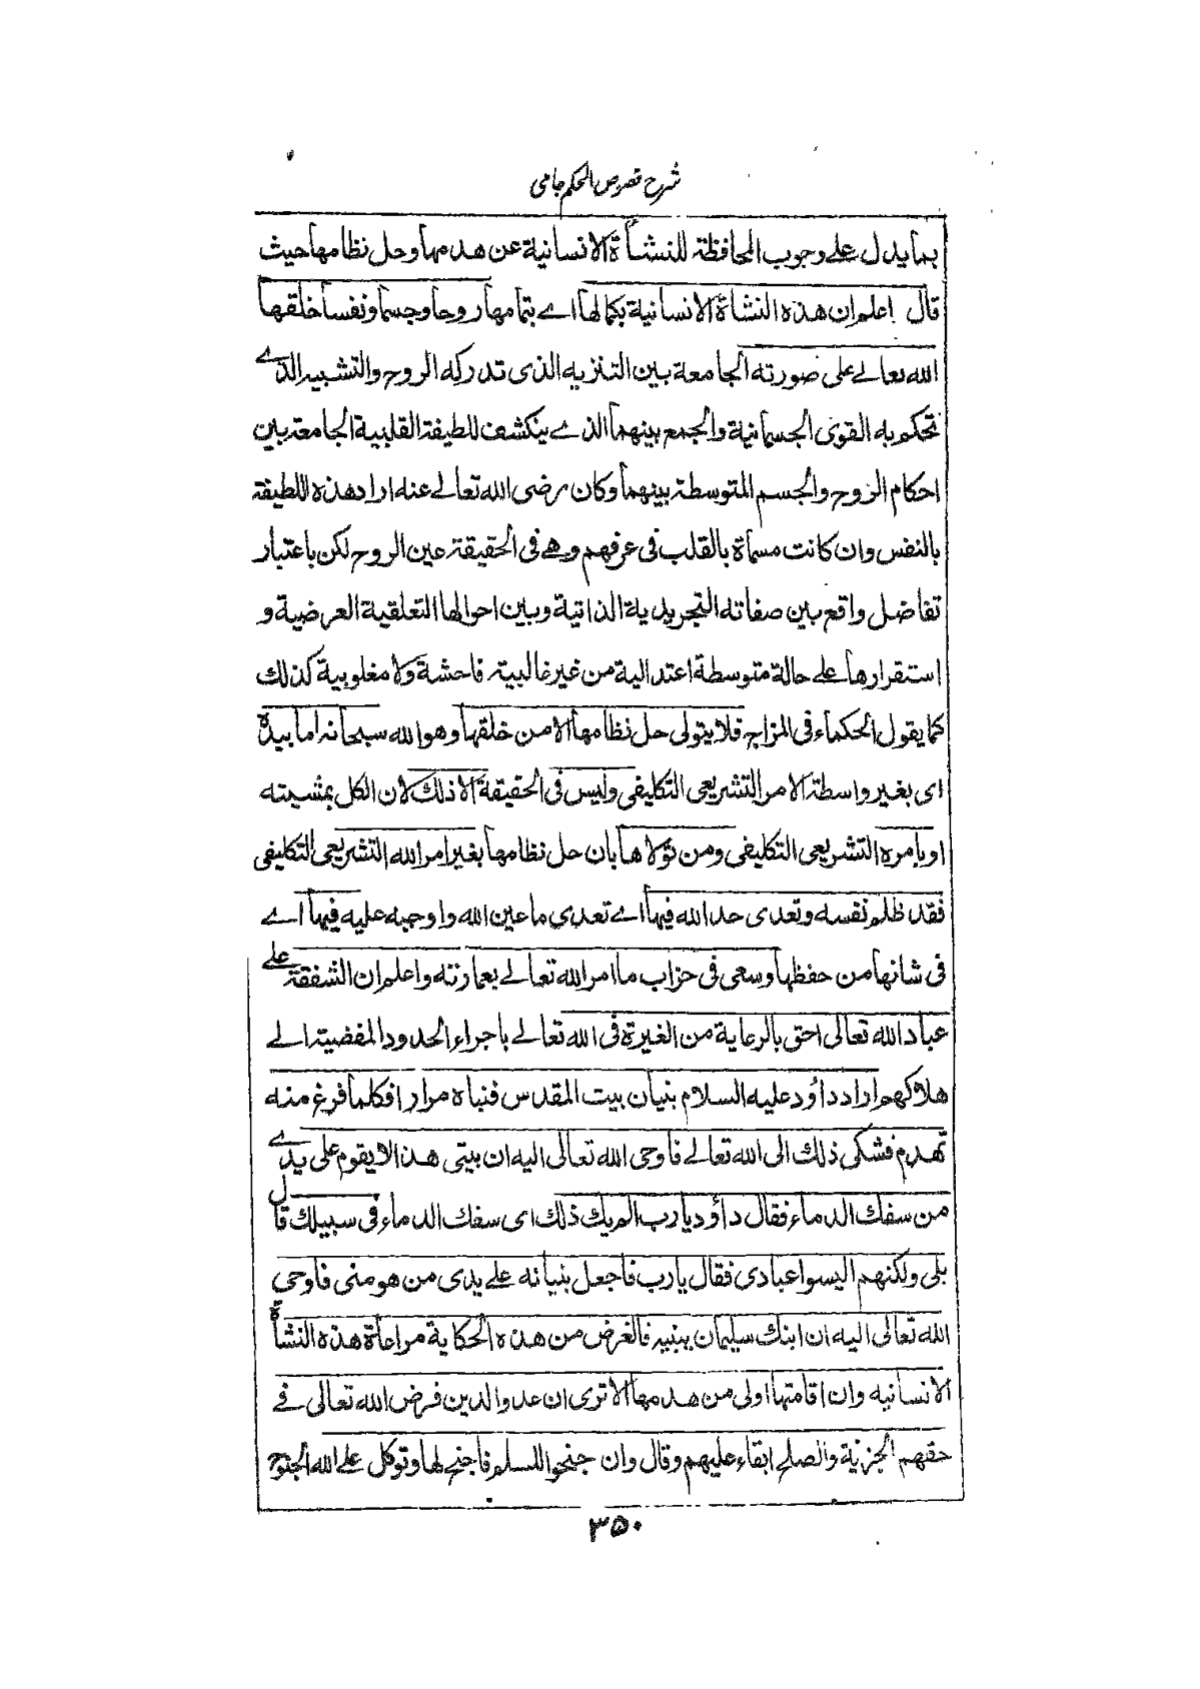 شرح فصوص الحكم جامى
بما يدل على وجوب المحافظة للنشأة الانسانية عن هدمها وحل نظامها حيث
قال اعلم ان هذه النشاة الانسانية بكمالها اے بتمامها روحا وجسما ونفسا خلقها
الله تعالے على صورته الجامعة بين التنزيه الذى تدركه الروح والتشبيه الذے
تحكم به القوى الجسمانية والجمع بينهما الذے ينكشف للطيفة القلبية الجامعة بين
احكام الروح والجسم المتوسطة بينهما وكان رضى الله تعالے عنه اراد هذه اللطيفة
بالنفس وان كانت مسماة بالقلب فى عرفهم وهے فى الحقيقة عين الروح لكن باعتبار
تفاضل واقع بين صفاته التجريدية الذاتية وبين احوالها التعلقية العرضية و
استقرارها علے حالة متوسطة اعتدالية من غير غالبية فاحشة ولا مغلوبية كذلك
كما يقول الحكماء فى المزاج فلا يتولى حل نظامها الا من خلقها وهو الله سبحانه اما بيده
اى بغير واسطة الامر التشريعى التكليفى وليس فى الحقيقة الا ذلك لان الكل بمشيته
او بامره التشريعى التكليفى ومن تولاها بان حل نظامها بغير امر الله التشريعى التكليفى
فقد ظلم نفسه وتعدى حد الله فيها اے تعدى ما عين الله واوجبه عليه فيها اے
فى شانها من حفظها وسعى فى خراب ما امر الله تعالے بعمارته واعلم ان الشفقة علے
عباد الله تعالى احق بالرعاية من الغيرة فى الله تعالے باجراء الحدود المفضية الے
هلاكهم اراد داؤد عليه السلام بنيان بيت المقدس فبناه مرارا فكلما فرغ منه
تهدم فشكى ذلك الى الله تعالے فاوحى الله تعالى اليه ان بيتى هذا لا يقوم على يدے
من سفك الدماء فقال داؤد يا رب الم يك ذلك اى سفك الدماء فى سبيلك قال
بلى ولكنهم اليسوا عبادى فقال يا رب فاجعل بنيانه علے يدى من هو منى فاوحى
الله تعالى اليه ان ابنك سليمان يبنيه فالغرض من هذه الحكاية مراعاة هذه النشأة
الانسانيه وان اقامتها اولى من هدمها الا ترى ان عدو الدين فرض الله تعالى فے
حقهم الجزية والصلح ابقاء عليهم وقال وان جنحوا للسلم فاجنح لها وتوكل علے الله الجنوح
۳۵۰